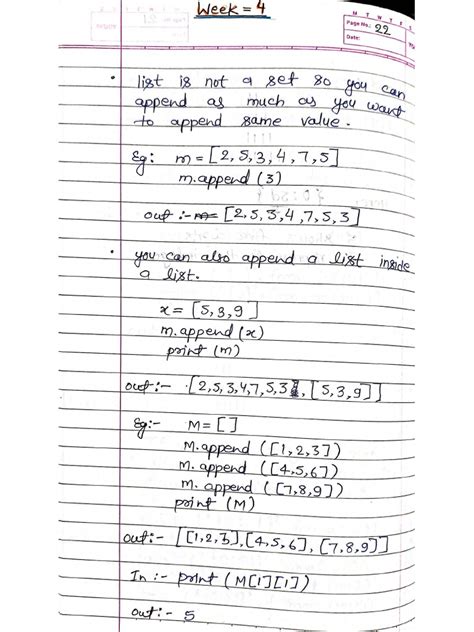 Week = 4
M T W T F S
Page No.: 22
Date:
• list is not a set so you can
append as much as you want
to append same value.
Eg: m = [2, 5, 3, 4, 7, 5]
m.append (3)
out :- [2, 5, 3, 4, 7, 5, 3]
• you can also append a list inside
a list.
x = [5, 3, 9]
m.append (x)
print (m)
out :- [2, 5, 3, 4, 7, 5, 3, [5, 3, 9]]
Eg:- M = []
M.append ([1, 2, 3])
M.append ([4, 5, 6])
M.append ([7, 8, 9])
print (M)
out:- [[1, 2, 3], [4, 5, 6], [7, 8, 9]]
In :- print (M[1][1])
out :- 5